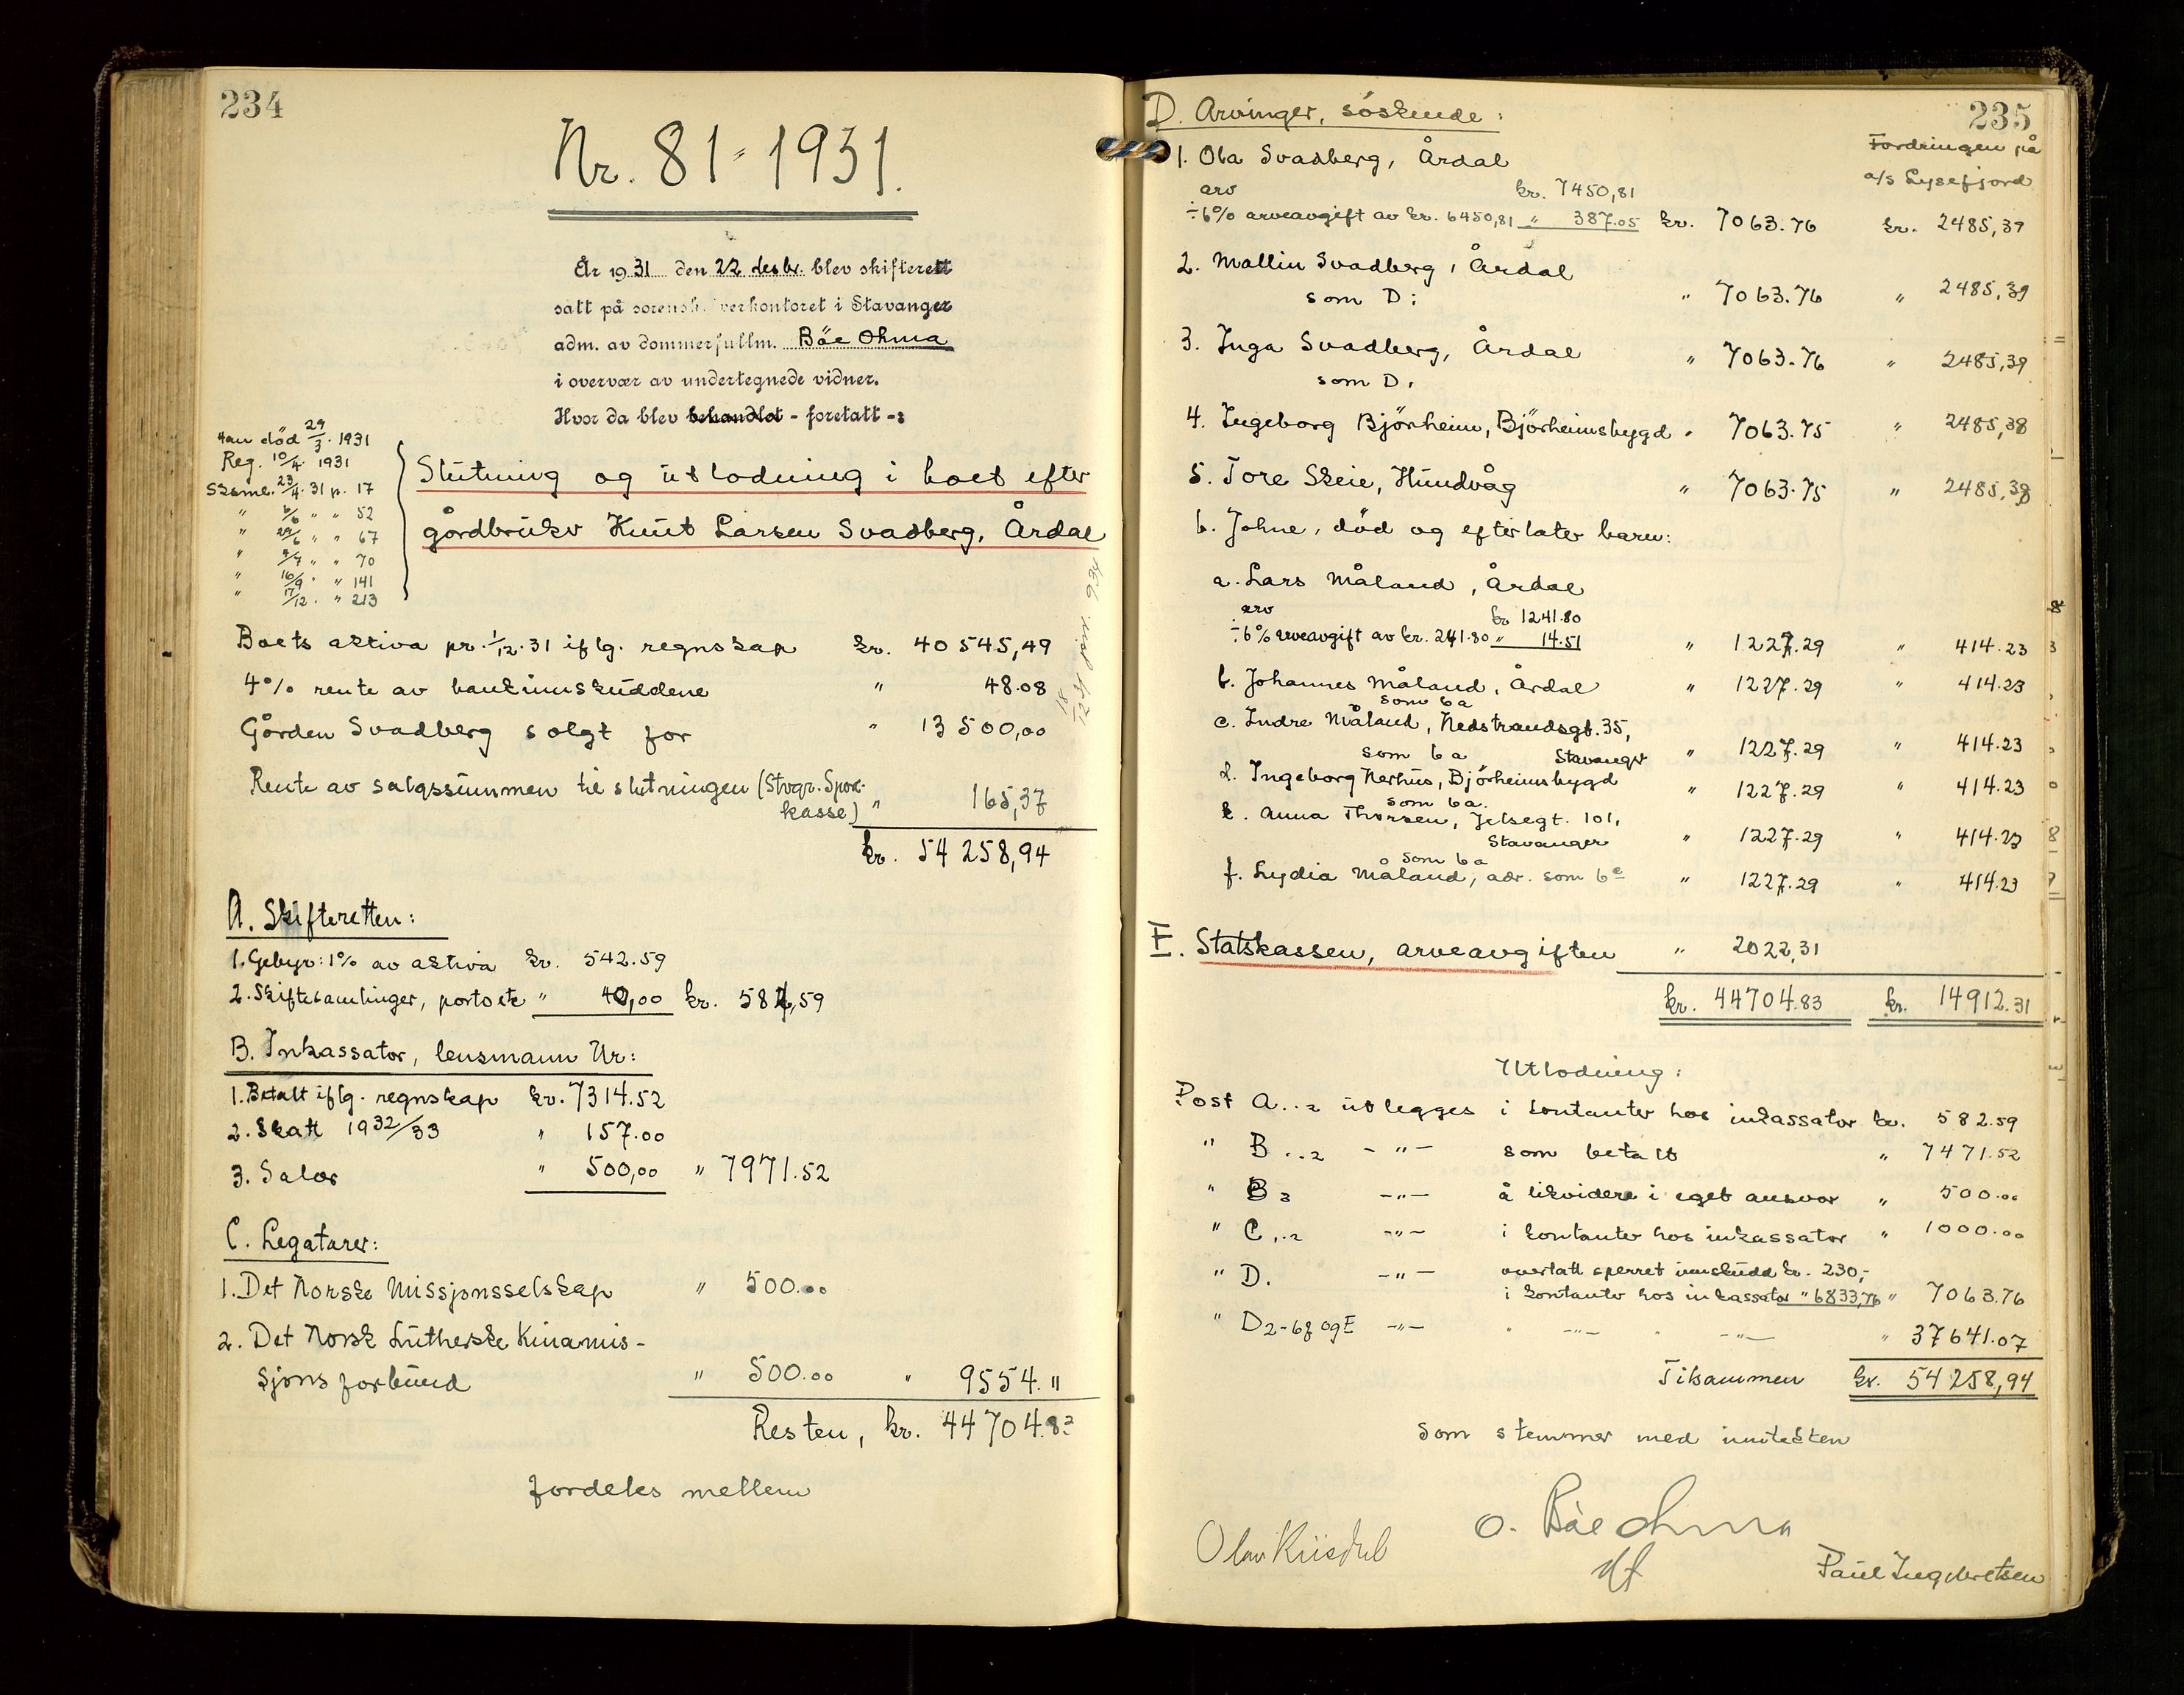 234
Nr. 81 - 1931.
År 1931 den 22 desbr. blev skifterett
satt på sorensk. verkontoret i Stavanger
adm. av dommerfullm. Bäe Ohma
i overvær av undertegnede vidner.
Hvor da blev behandlet - foretatt -:
Han död 29/3. 1931
Reg. 10/4. 1931
Sksml. 23/4. 31 p. 17
" 6/6 " " 52
" 29/6 " " 67
" 4/7 " " 70
" 16/9 " " 141
" 17/12. " 213
Slutning og utlodning i boet efter
gårdbruker Knut Larsen Svadberg, Årdal
Boets aktiva pr. 1/12. 31 iflg. regnskap kr. 40 545,49
4% rente av bankinnskuddene " 48.08
Gården Svadberg solgt for " 13 500,00
Rente av salgssummen til slutningen (Stvgr. Spar-
kasse) " 165,37
kr. 54 258,94
A. Skifteretten:
1. Gebyr: 1% av aktiva kr. 542.59
2. Skiftesamlinger, porto etc " 40,00 kr. 582,59
B. Inkassator, lensmann Ur:
1. Betalt iflg. regnskap kr. 7314.52
2. Skatt 1932/33 " 157.00
3. Salær " 500,00 " 7971.52
C. Legatarer:
1. Det Norske Missjonsselskap " 500.00
2. Det Norsk Lutherske Kinamis-
sjonsforbund " 500.00 " 9554.11
Resten, kr. 44704.83
fordeles mellem
235
D. Arvinger, söskende:
Fordringen på
a/s Lysefjord
1. Ola Svadberg, Årdal
arv kr. 7450,81
÷ 6% arveavgift av kr. 6450,81 " 387.05 kr. 7063.76 kr. 2485,39
2. Mallin Svadberg, Årdal
som D: " 7063.76 " 2485,39
3. Inga Svadberg, Årdal " 7063.76 " 2485,39
som D,
4. Ingeborg Bjørheim, Bjørheimsbygd " 7063.75 " 2485,38
5. Tore Skeie, Hundvåg " 7063.75 " 2485,38
6. Johne, död og efterlater barn:
a. Lars Måland, Årdal
arv kr 1241.80
÷ 6% arveavgift av kr. 241.80 " 14.51 " 1227.29 " 414.23
b. Johannes Måland, Årdal " 1227.29 " 414.23
som 6a
c. Indre Måland, Nedstrandsgt. 35,
som 6a Stavanger " 1227.29 " 414.23
d. Ingeborg Nerhus, Bjørheimsbygd " 1227.29 " 414.23
som 6a.
e. Anna Thorsen, Jelsegt. 101,
Stavanger " 1227.29 " 414.23
som 6a
f. Lydia Måland, adr. som 6e " 1227.29 " 414.23
E. Statskassen, arveavgiften " 2022,31
kr. 44704.83 kr. 14912.31
Utlodning:
Post A..2 utlegges i kontanter hos inkassator kr. 582.59
" B..2 - " - som betalt " 7471.52
" B3 - " - å likvidere i eget ansvar " 500.00
" C..2 - " - i kontanter hos inkassator " 1000.00
" D. - " - overtatt sperret innskudd kr. 230,-
i kontanter hos inkassator " 6833,76 " 7063.76
" D2-6f og E - " - " - " - " - " - " 37641.07
Tilsammen kr. 54 258,94
som stemmer med inntekten
O. Bäe Ohma
df
Paul Ingebretsen